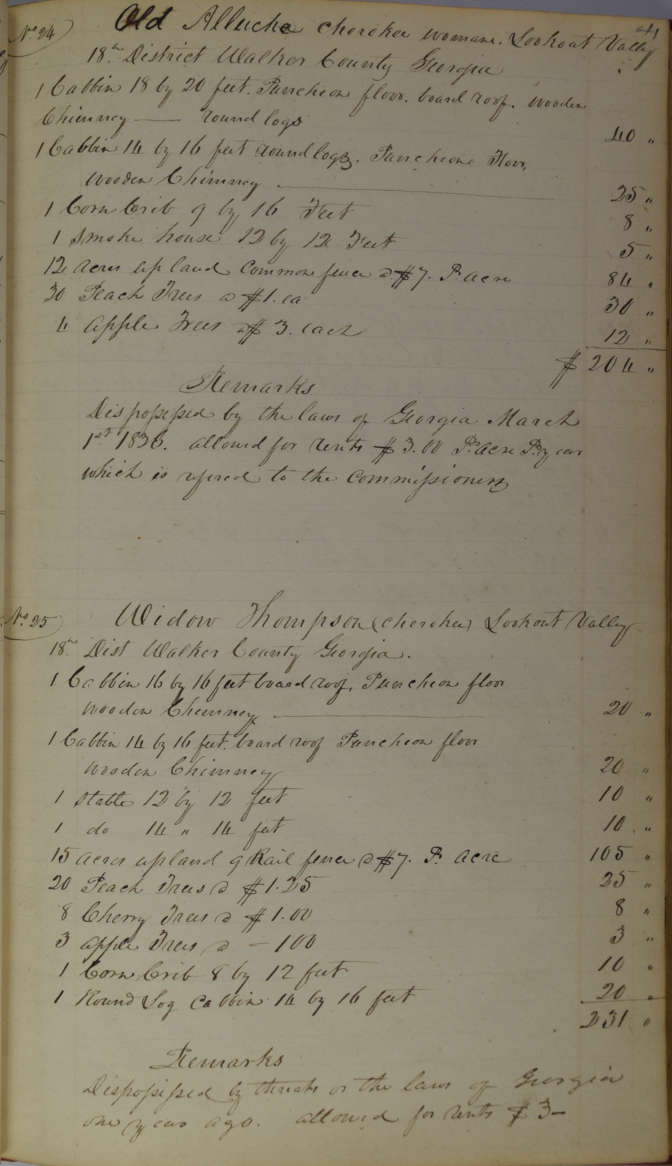 41
No 24) Old Alluche cherokee womans. Lookout Valley
18th District Walker County Georgia
1 Cabbin 18 by 20 feet. Puncheon floor. board roof. wooden
Chimney — round logs 40 "
1 Cabbin 14 by 16 feet round logs. Puncheons Floor,
wooden Chimney — 25 "
1 Corn Crib 9 by 16 Feet 8 "
1 Smoke house 12 by 12 Feet 5 "
12 acres upland common fence @ $7. Pr acre 84 "
30 Peach Trees @ $1. ea 30 "
4 apple Trees @ $3. each 12 "
$ 204 "
Remarks
Dispossessed by the laws of Georgia March
1st 1836. allowed for rents $3.00 Pr acre Pr year
which is refered to the commissioners
No 25) Widow Thompson (cherokee) Lookout Valley
18th Dist Walker County Georgia.
1 Cabbin 16 by 16 feet board roof, Puncheon floor
wooden Chimney — 20 "
1 Cabbin 14 by 16 feet. board roof Puncheon floor
wooden Chimney 20 "
1 Stable 12 by 12 feet 10 "
1 do 14 " 14 feet 10 "
15 acres upland 9 Rail fence @ $7. Pr acre 105 "
20 Peach Trees @ $1.25 25 "
8 Cherry Trees @ $1.00 8 "
3 apple Trees @ – 100 3 "
1 Corn Crib 8 by 12 feet 10 "
1 Round Log Cabbin 14 by 16 feet 20 "
231 "
Remarks
Dispossessed by threats or the laws of Georgia
one year ago. allowed for rents $3–